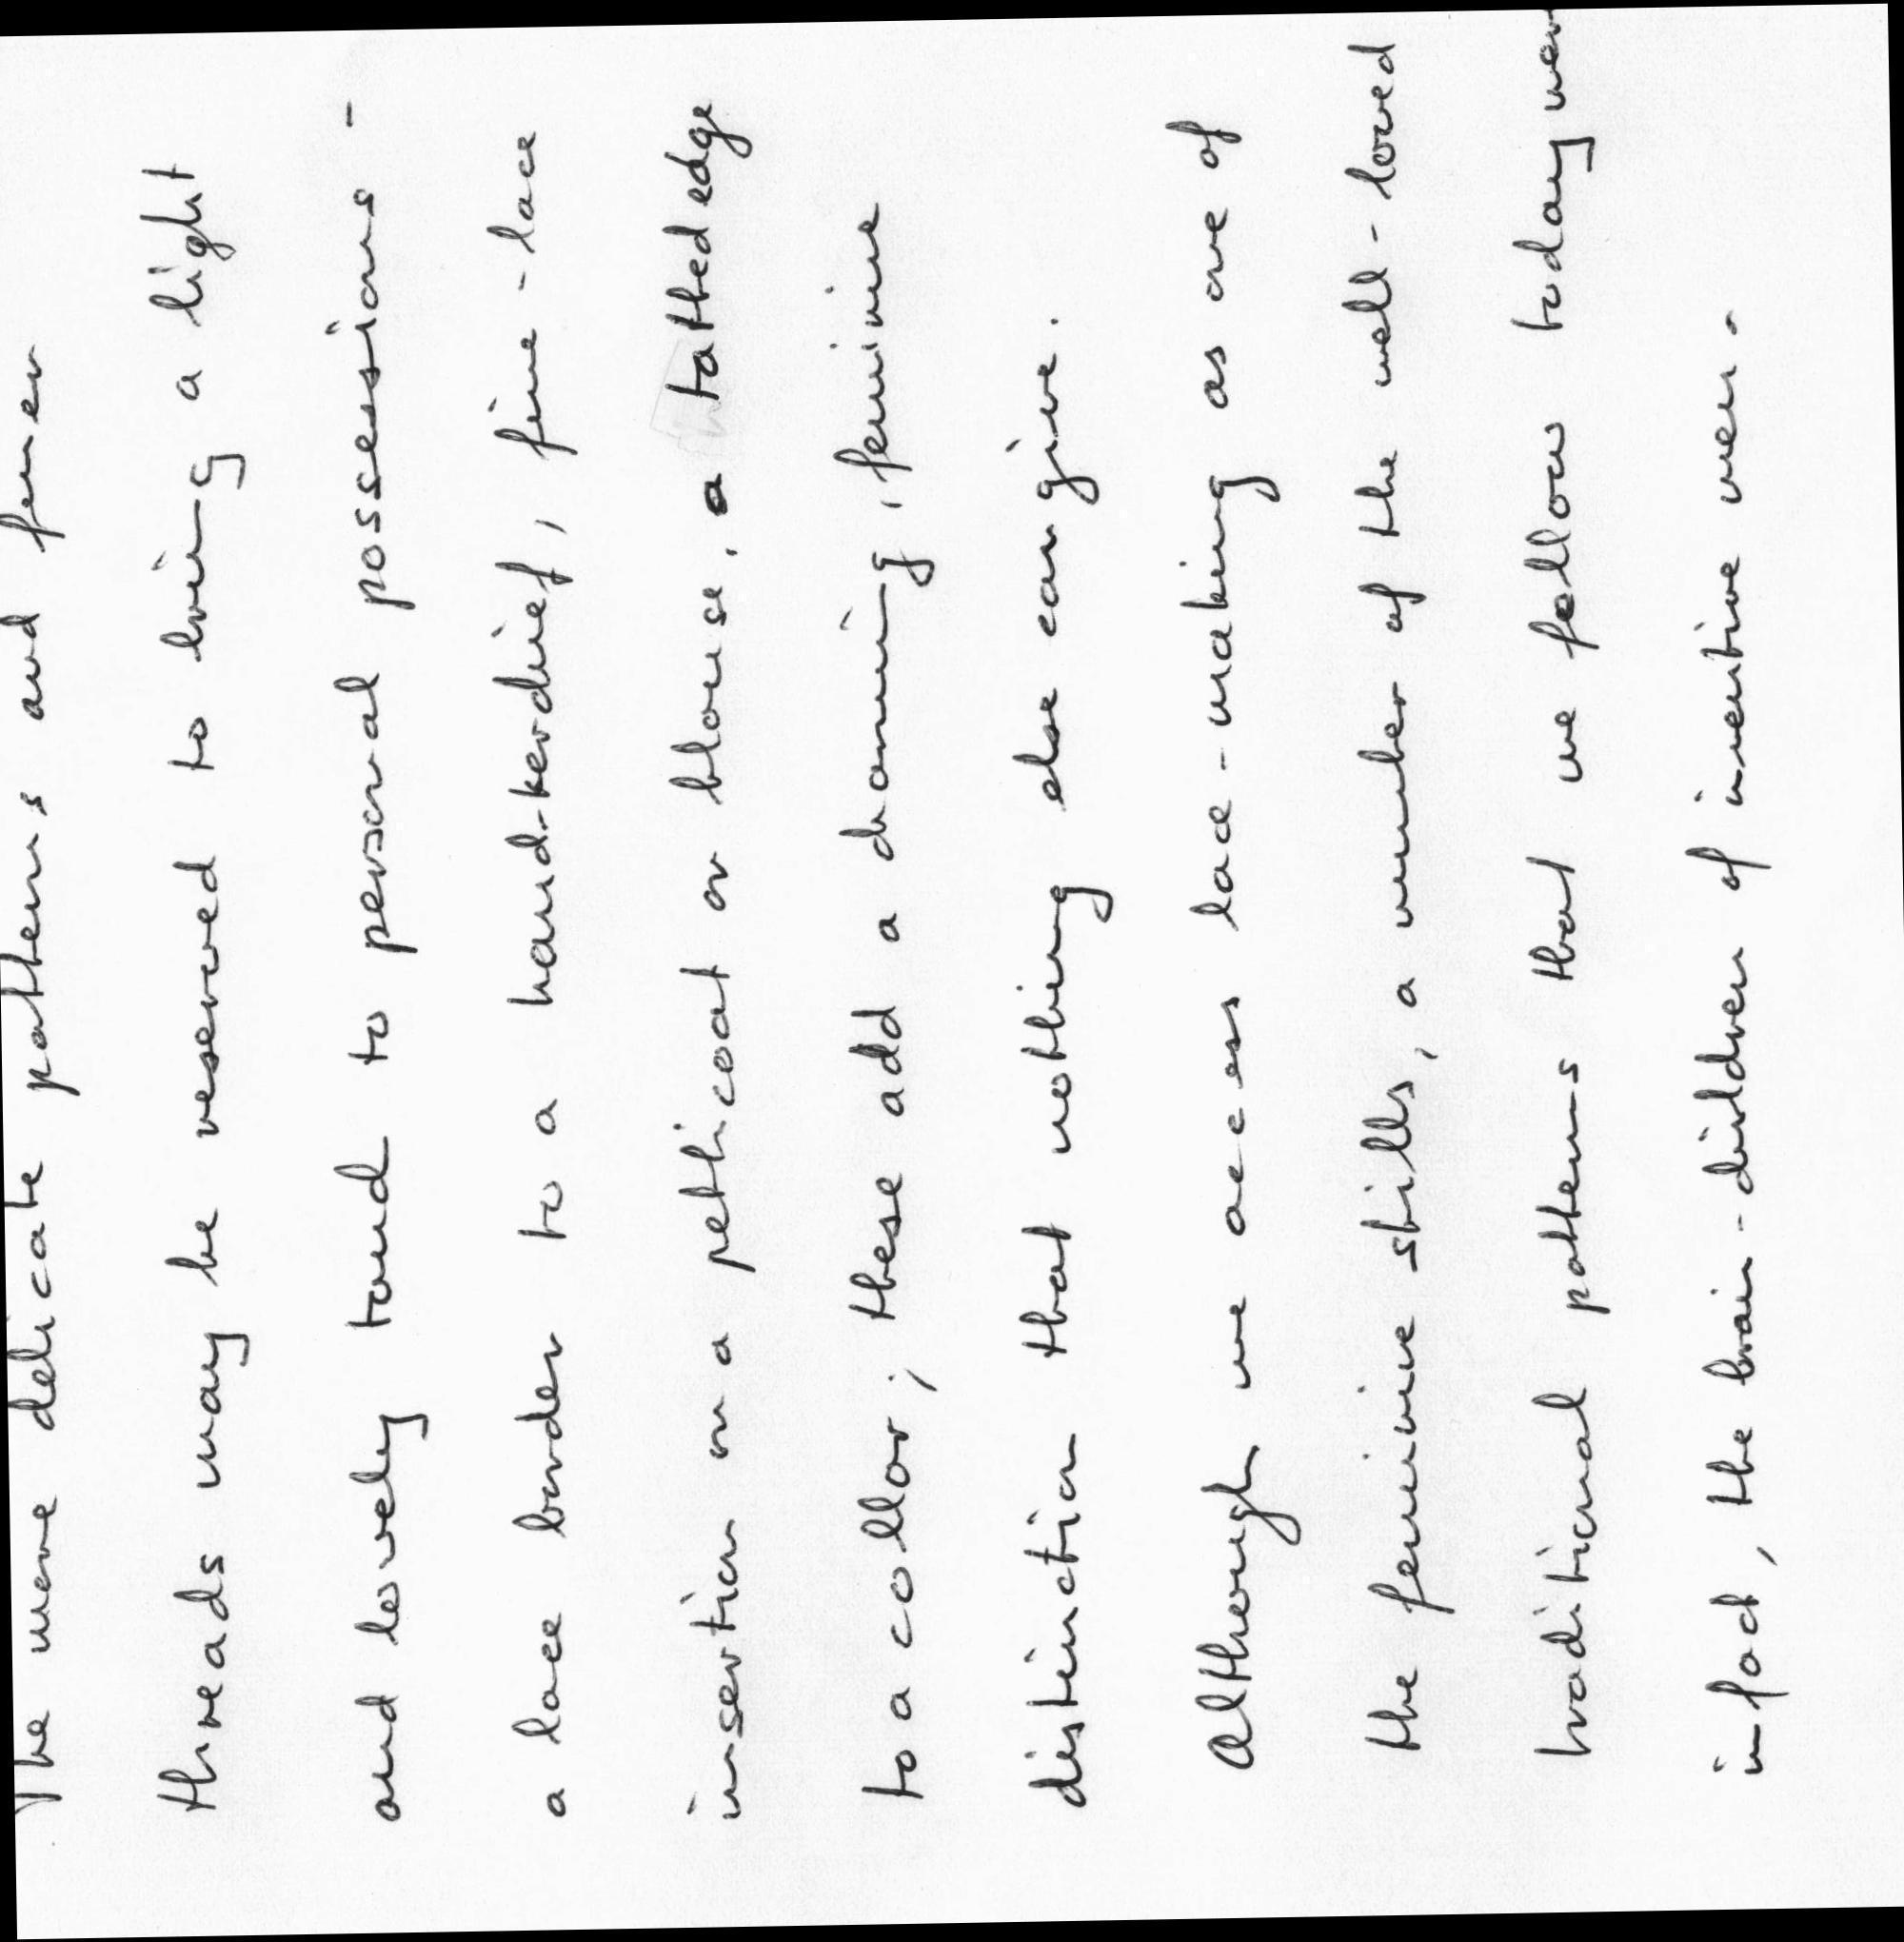 The more delicate patterns and finer
threads may be reserved to bring a light
and lovely touch to personal possessions -
a lace border to a hand-kerchief, fine-lace
insertion on a petticoat or blouse, a tatted edge
to a collar; these add a charming, feminine
distinction that nothing else can give.
Although we access lace-making as one of
the feminine skills, a number of the well-loved
traditional patterns that we follow today were
in fact, the brain-children of inventive men.